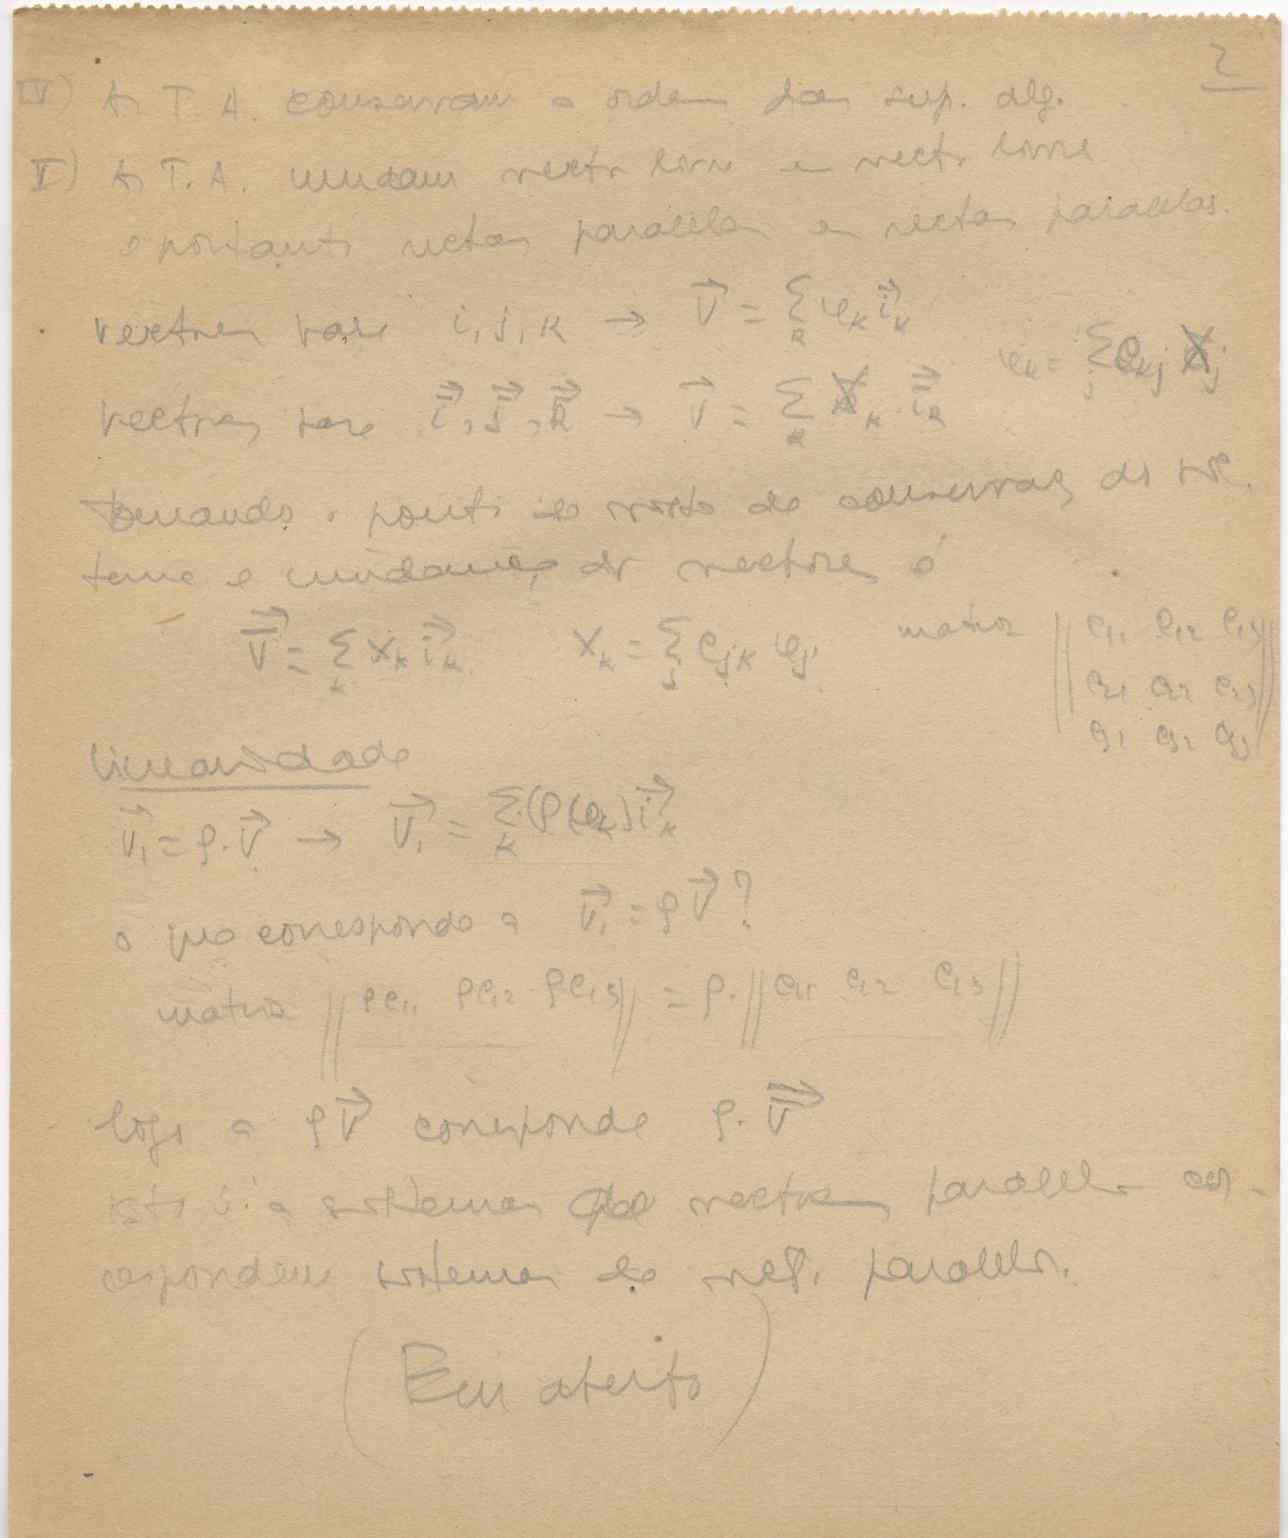 2
IV) As T. A. conservam a ordem das sup. alg.
V) As T. A. mudam vect. livre em vect. livre
e portanto rectas paralelas em rectas paralelas.
vectores base i, j, k → V⃗ = Σ_k φ_k i⃗_k
φ_k = Σ_j e_kj X_j
vectores base i⃗, j⃗, k⃗ → V⃗ = Σ_k X_k i⃗_k
Tomando o ponto de vista da conservação do sis-
tema e mudança de vectores é
V⃗ = Σ_k X_k i⃗_k X_k = Σ_j e_jk φ_j matriz || e₁₁ e₁₂ e₁₃
e₂₁ e₂₂ e₂₃
e₃₁ e₃₂ e₃₃ ||
Linearidade
V⃗₁ = ρ.V⃗ → V⃗₁ = Σ_k (ρ φ_k) i⃗_k
o que corresponde a V⃗₁ = ρV⃗ ?
matriz || ρe₁₁ ρe₁₂ ρe₁₃ || = ρ. || e₁₁ e₁₂ e₁₃ ||
logo a ρV⃗ corresponde ρ.V⃗
isto é: a sistemas de vectores paralelos cor-
respondem sistemas de vect. paralelos.
(Em aberto)